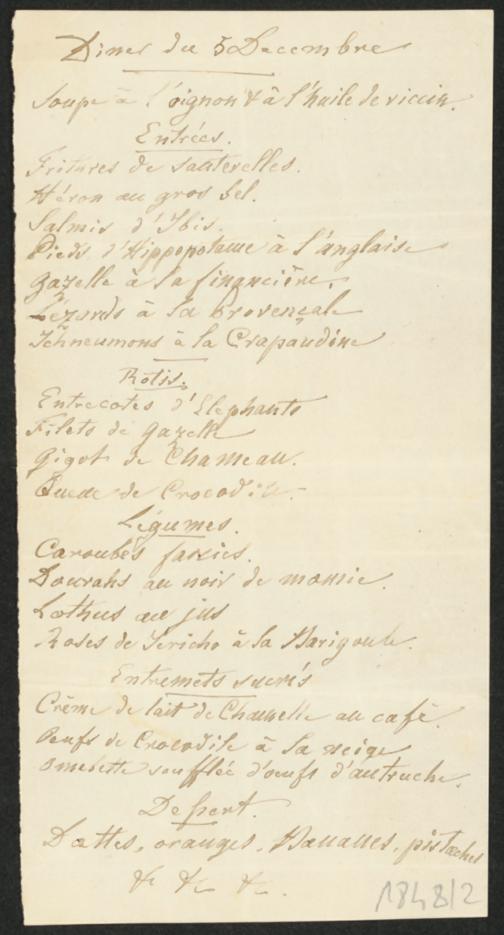 Diner du 5 Decembre
Soupe à l'oignon & à l'huile de ricin.
Entrées.
Fritures de sauterelles.
Héron au gros sel.
Salmis d'Ibis.
Pieds d'Hippopotame à l'anglaise
Gazelle à la financière.
Lézards à la Provençale
Ichneumons à la Crapaudine
Rotis.
Entrecotes d'Elephants
Filets de gazelle
Gigot de Chameau.
Queue de Crocodile.
Légumes.
Caroubes farcies.
Dourahs au noir de momie.
Lothus au jus
Roses de Jericho à la Barigoule.
Entremets sucrés
Crème de lait de Chamelle au café.
Oeufs de Crocodile à la neige
Omelette soufflée d'oeufs d'autruche.
Dessert.
Dattes, oranges, Bananes, pistaches
& & &.
1848/2